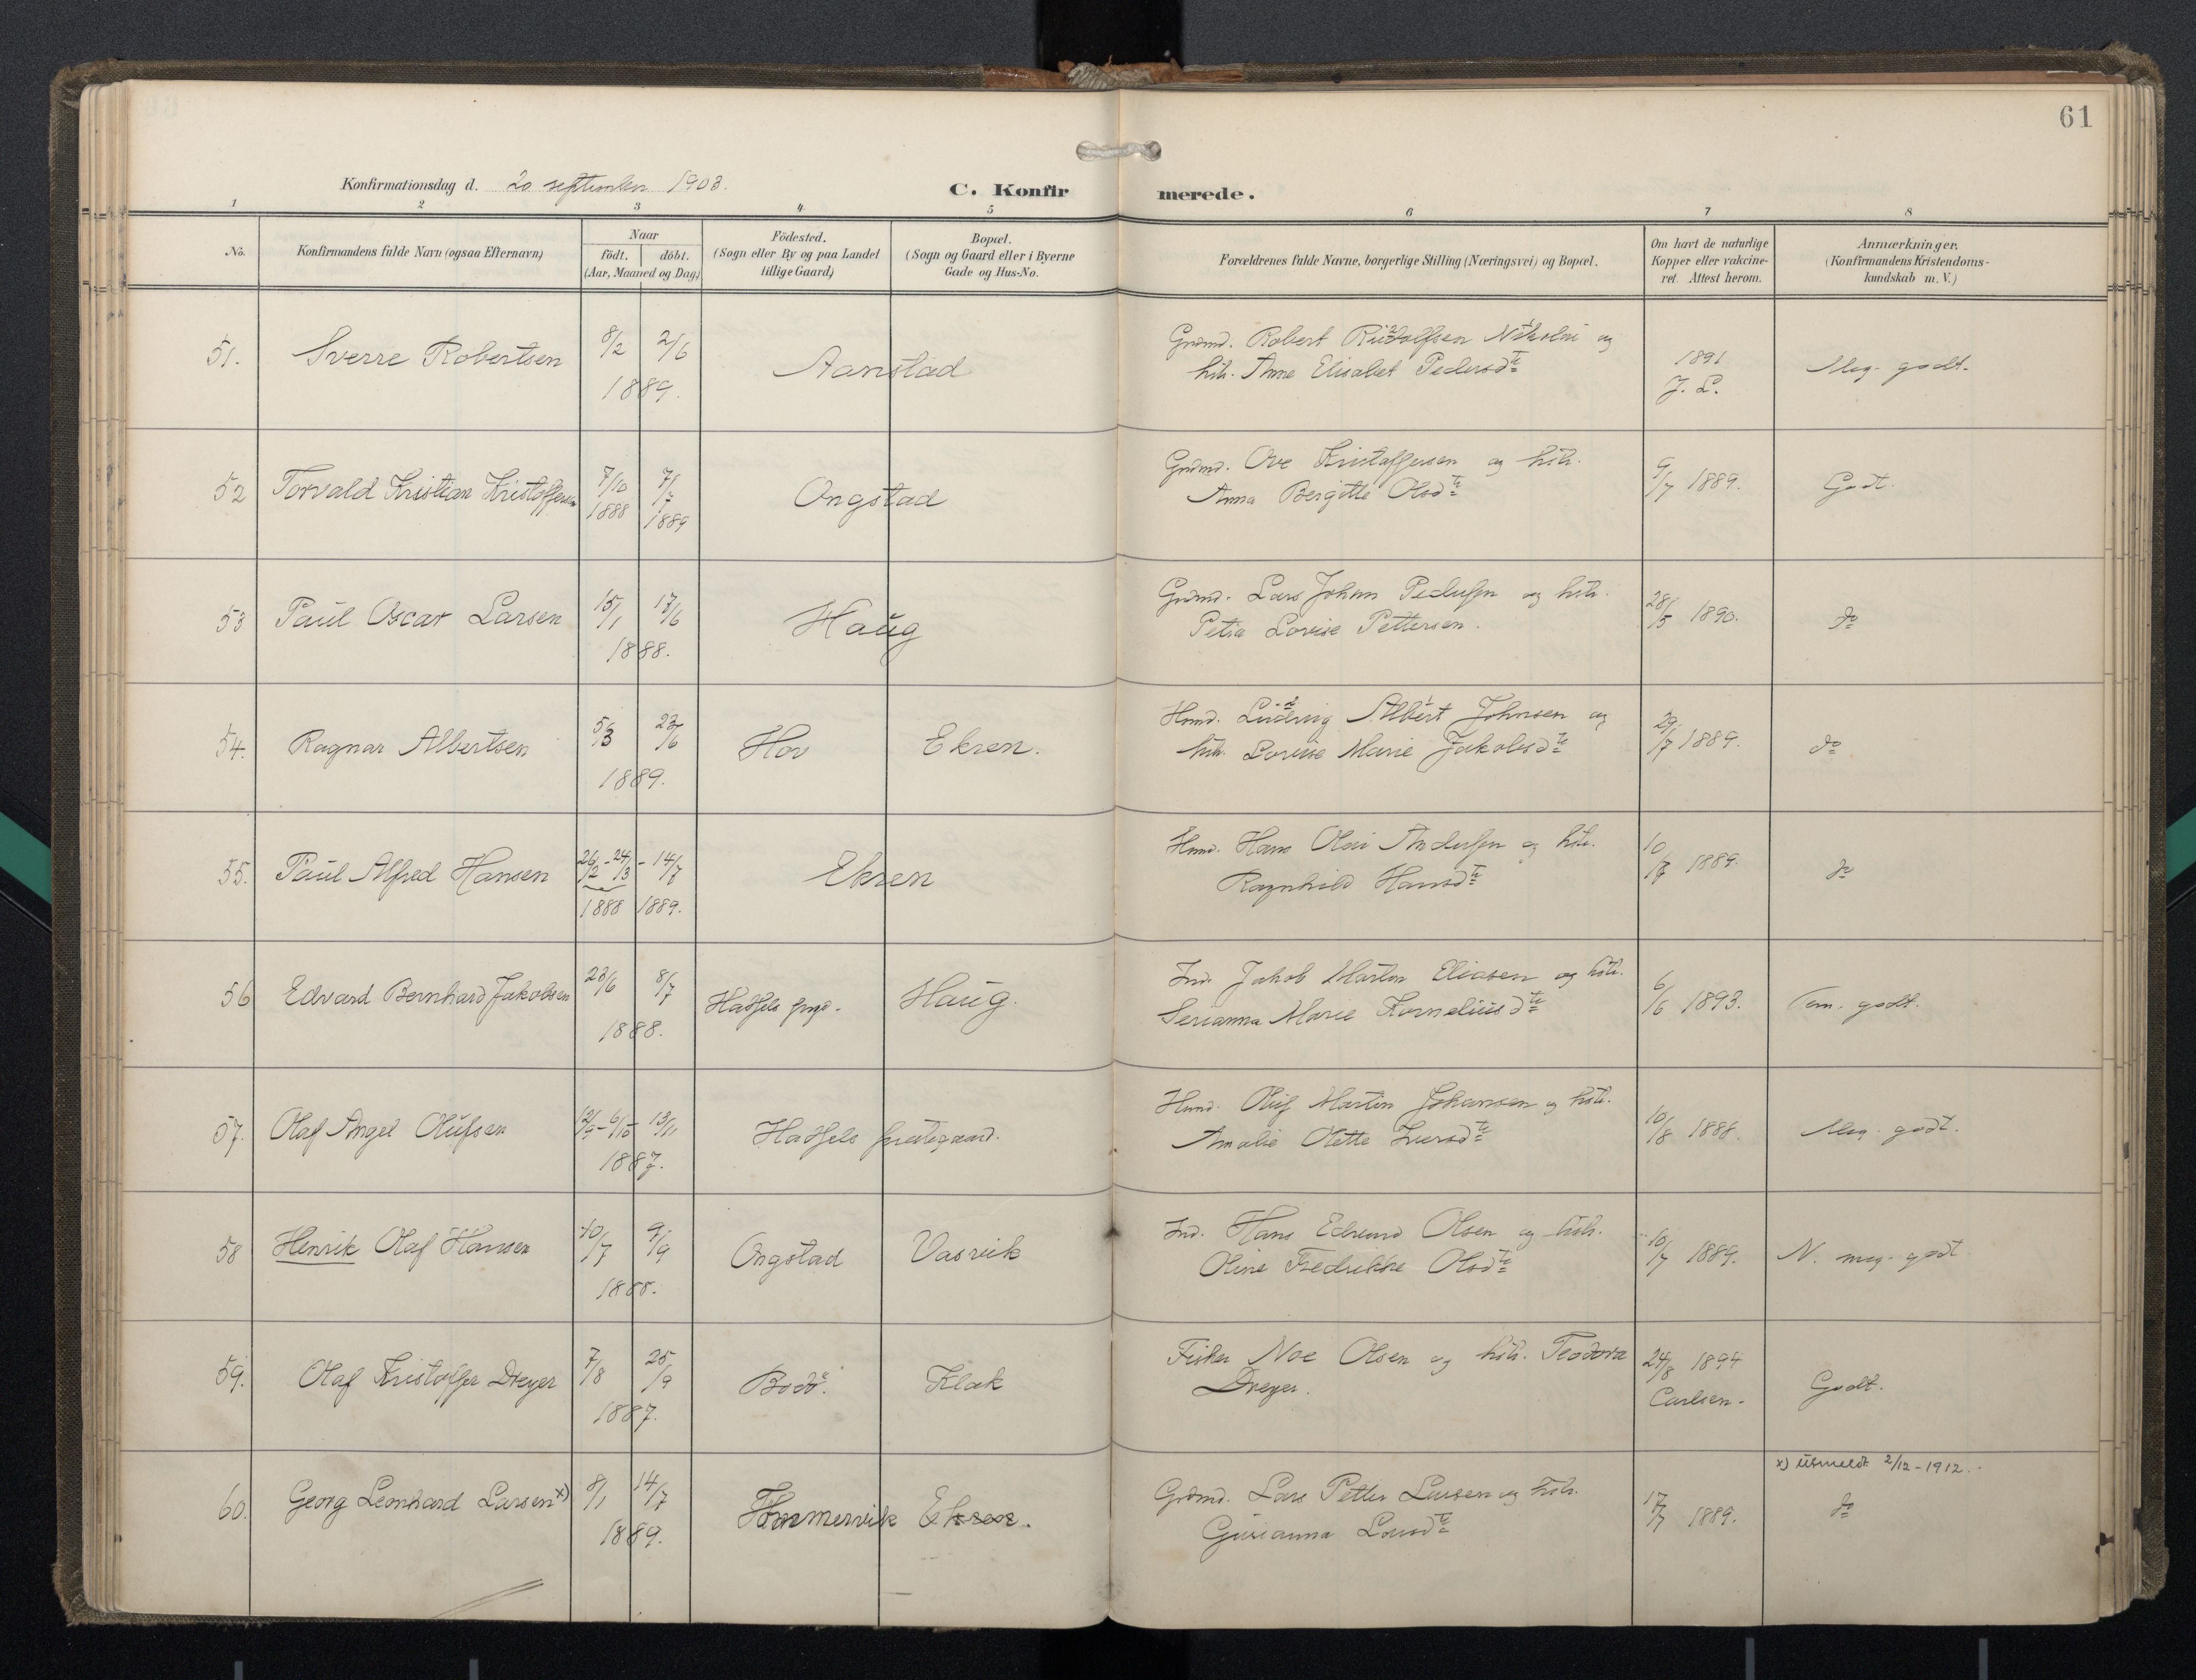 61
Konfirmationsdag d. 20 september 1903.
C. Konfirmerede.
1 2 3 4 5 6 7 8
No.
Konfirmandens fulde Navn (ogsaa Efternavn)
Naar
födt. döbt.
(Aar, Maaned og Dag)
Födested.
(Sogn eller By og paa Landet
tillige Gaard)
Bopæl.
(Sogn og Gaard eller i Byerne
Gade og Hus-No.
Forældrenes fulde Navne, borgerlige Stilling (Næringsvei) og Bopæl.
Om havt de naturlige
Kopper eller vakcine-
ret. Attest herom.
Anmærkninger.
(Konfirmandens Kristendoms-
kundskab m. V.)
51. Sverre Robertsen 8/2 2/6 1889. Aanstad
Grdmd. Robert Rudolfsen Nikolai og
hstr. Anne Elisabet Pedersdtr
1891
J. L.
Meg. godt.
52 Torvald Kristian Kristoffersen 7/10 1888 7/7 1889 Ongstad
Grdmd. Ove Kristoffersen og hstr.
Anna Bergitte Olsdtr
9/7 1889.
Godt.
53 Paul Oscar Larsen 15/1 17/6 1888. Haug
Grdmd. Lars Johan Pedersen og hstr.
Petra Lovise Pettersen.
28/5 1890.
do
54. Ragnar Albertsen 5/3 23/6 1889. Hov Ekren.
Hmd. Ludvig Albert Johnsen og
hstr. Lovise Marie Jakobsdtr
29/7 1889.
do
55. Paul Alfred Hansen 26/2 - 24/3 - 14/7
1888 1889. Ekren
Hmd. Hans Olai Andersen og hstr.
Ragnhild Hansdtr
10/7 1889.
do
56 Edvard Bernhard Jakobsen 23/6 8/7 1888. Hadsels prgd. Haug.
Ind. Jakob Martin Eliasen og hstr.
Serianna Marie Korneliusdtr
6/6 1893.
Tem. godt.
57. Olaf Angel Olufsen 12/9 - 6/10 - 13/11
1887. Hadsels prestegaard.
Hmd. Oluf Martin Johansen og hstr.
Amalie Olette Iversdtr
10/8 1888.
Meg. godt.
58 Henrik Olaf Hansen 10/7 9/9 1888. Ongstad Vasvik
Ind. Hans Edvard Olsen og hstr.
Oline Fredrikke Olsdtr
10/7 1889.
N. meg. godt
59. Olaf Kristoffer Dreyer 7/8 25/9 1887. Bodö. Flak
Fisker Noe Olsen og hstr. Teodora
Dreyer.
24/8 1894
Carlsen.
Godt.
60. Georg Leonhard Larsen x) 8/1 14/7 1889. Tømmervik Ekren.
Grdmd. Lars Petter Larsen og hstr.
Gurianna Larsdtr
17/7 1889.
x) utmeldt 2/12-1912.
do